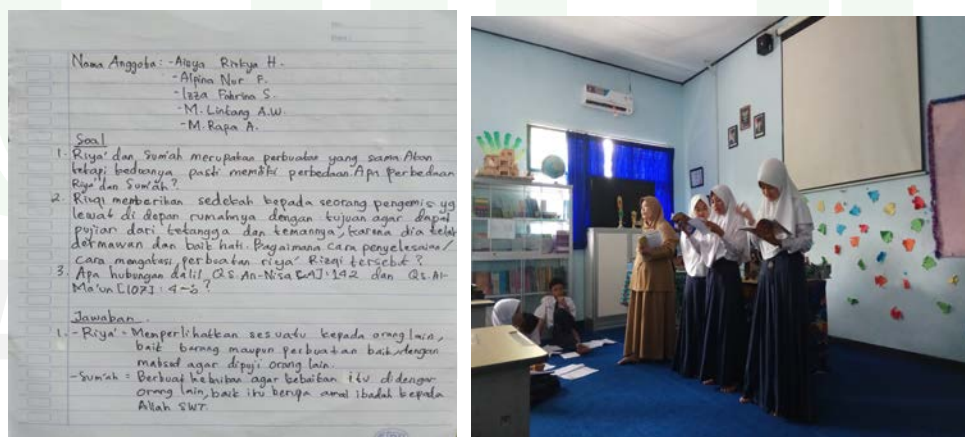 Nama Anggota : - Alisya Rizkya H.
- Alpina Nur F.
- Izza Fahrina S.
- M. Lintang A.W.
- M. Rapa A.
Soal
1. Riya' dan Sum'ah merupakan perbuatan yang sama. Akan
tetapi keduanya pasti memiliki perbedaan. Apa perbedaan
Riya' dan Sum'ah ?
2. Rizqi memberikan sedekah kepada seorang pengemis yg
lewat di depan rumahnya dengan tujuan agar dapat
pujian dari tetangga dan temannya, karena dia telah
dermawan dan baik hati. Bagaimana cara penyelesaian/
cara mengatasi perbuatan riya' Rizqi tersebut ?
3. Apa hubungan dalil QS. An-Nisa [4] : 142 dan QS. Al-
Ma'un [107] : 4-6 ?
Jawaban
1. - Riya' = Memperlihatkan sesuatu kepada orang lain,
baik barang maupun perbuatan baik, dengan
maksud agar dipuji orang lain.
- Sum'ah = Berbuat kebaikan agar kebaikan itu didengar
orang lain, baik itu berupa amal ibadah kepada
Allah SWT.